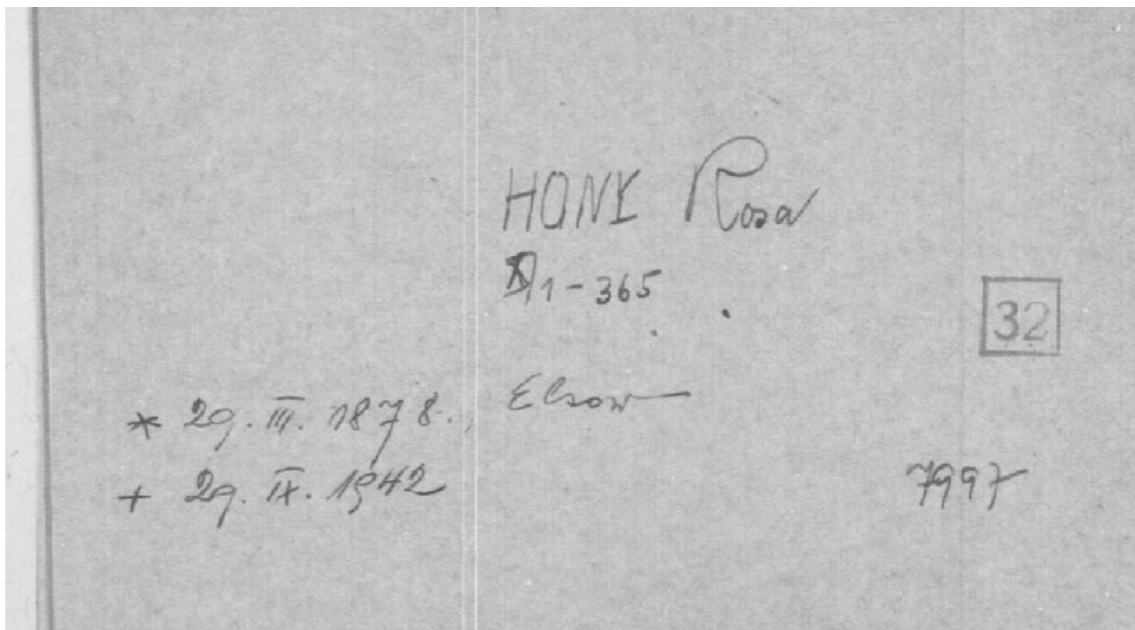 HONY Rosa
1-365
32
* 29. III. 1878.,
+ 29. IX. 1942
7997